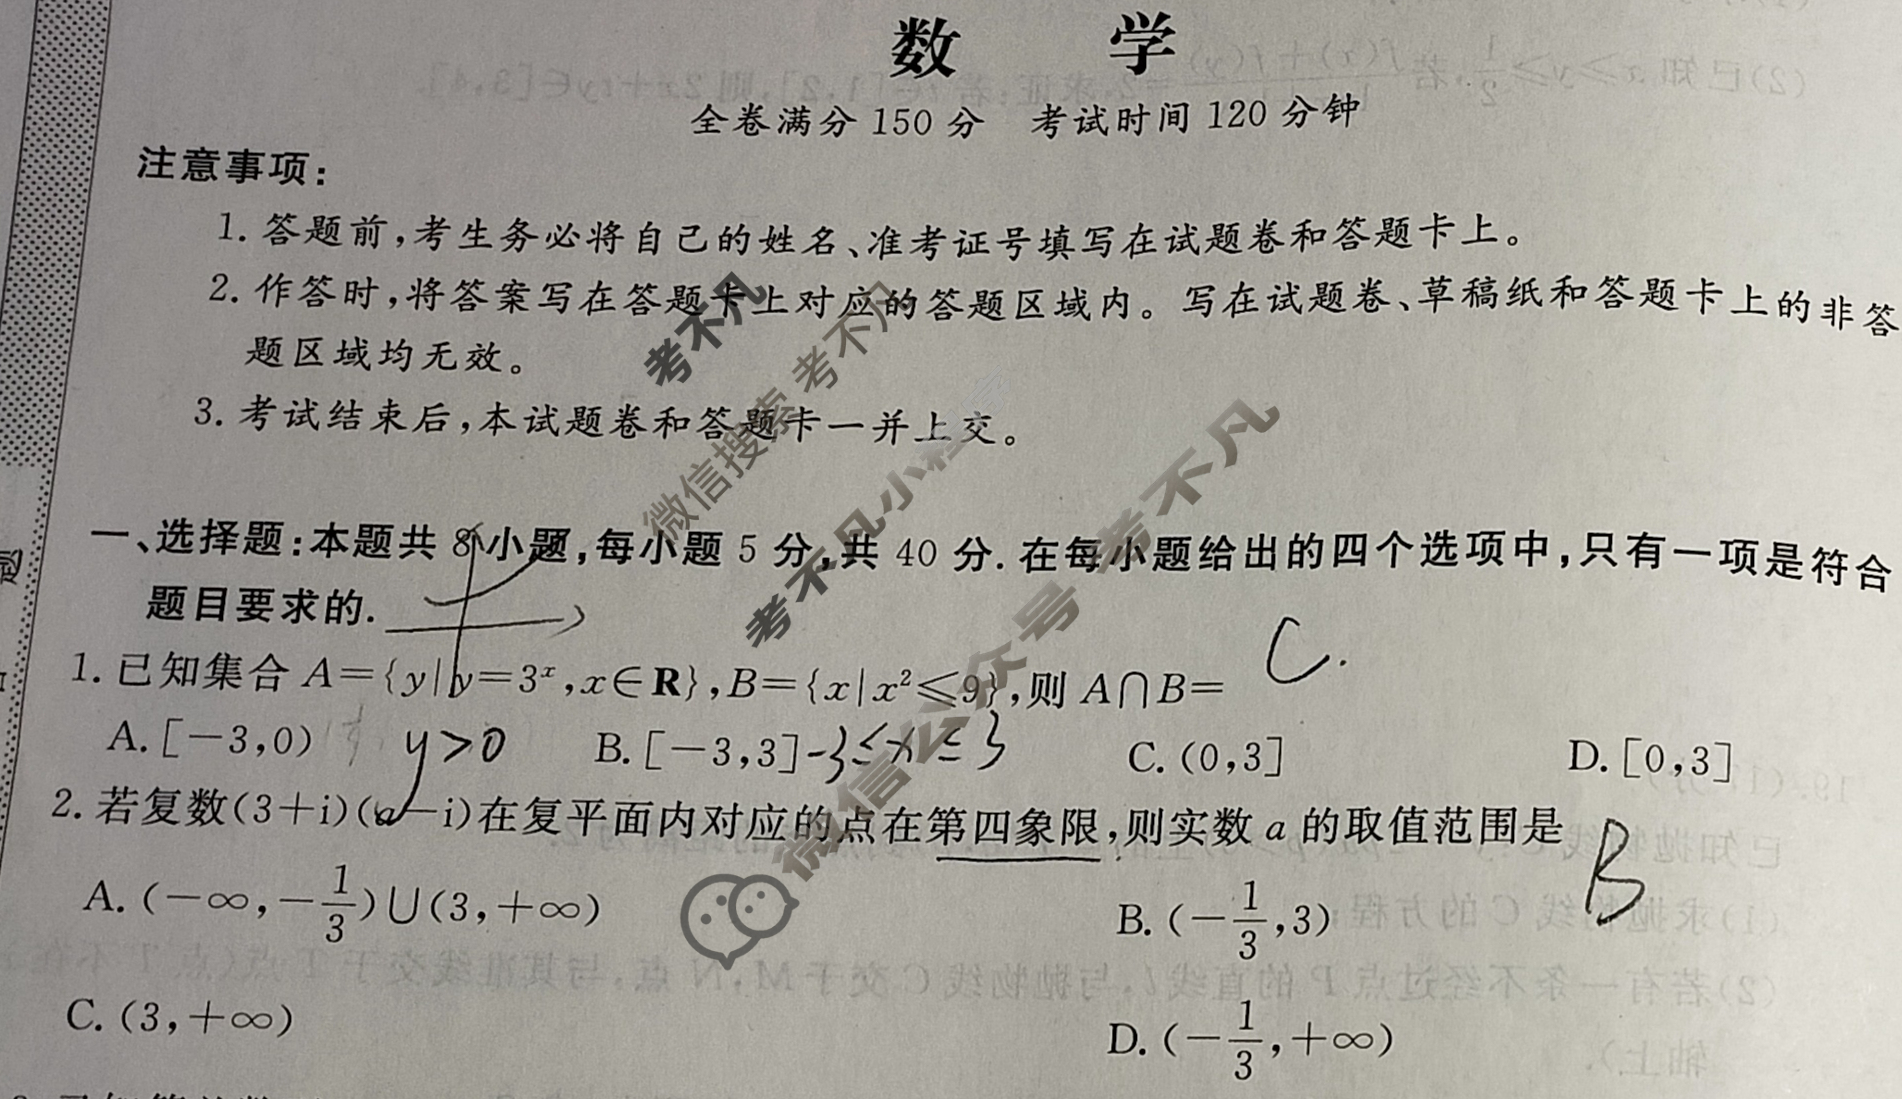 数 学
全卷满分 150 分 考试时间 120 分钟
注意事项：
1. 答题前，考生务必将自己的姓名、准考证号填写在试题卷和答题卡上。
2. 作答时，将答案写在答题卡上对应的答题区域内。写在试题卷、草稿纸和答题卡上的非答
题区域均无效。
3. 考试结束后，本试题卷和答题卡一并上交。
考不凡
微信搜索 考不凡
考不凡小程
微信公众号 考不凡
一、选择题：本题共 8 小题，每小题 5 分，共 40 分. 在每小题给出的四个选项中，只有一项是符合
题目要求的.
1. 已知集合 A={y|y=3ˣ,x∈R},B={x|x²≤9},则 A∩B= C.
A. [-3,0) y>0 B. [-3,3] -3≤x≤3 C. (0,3] D. [0,3]
2. 若复数(3+i)(a-i)在复平面内对应的点在第四象限,则实数 a 的取值范围是 B
A. (-∞,-1/3)∪(3,+∞) B. (-1/3,3)
C. (3,+∞) D. (-1/3,+∞)